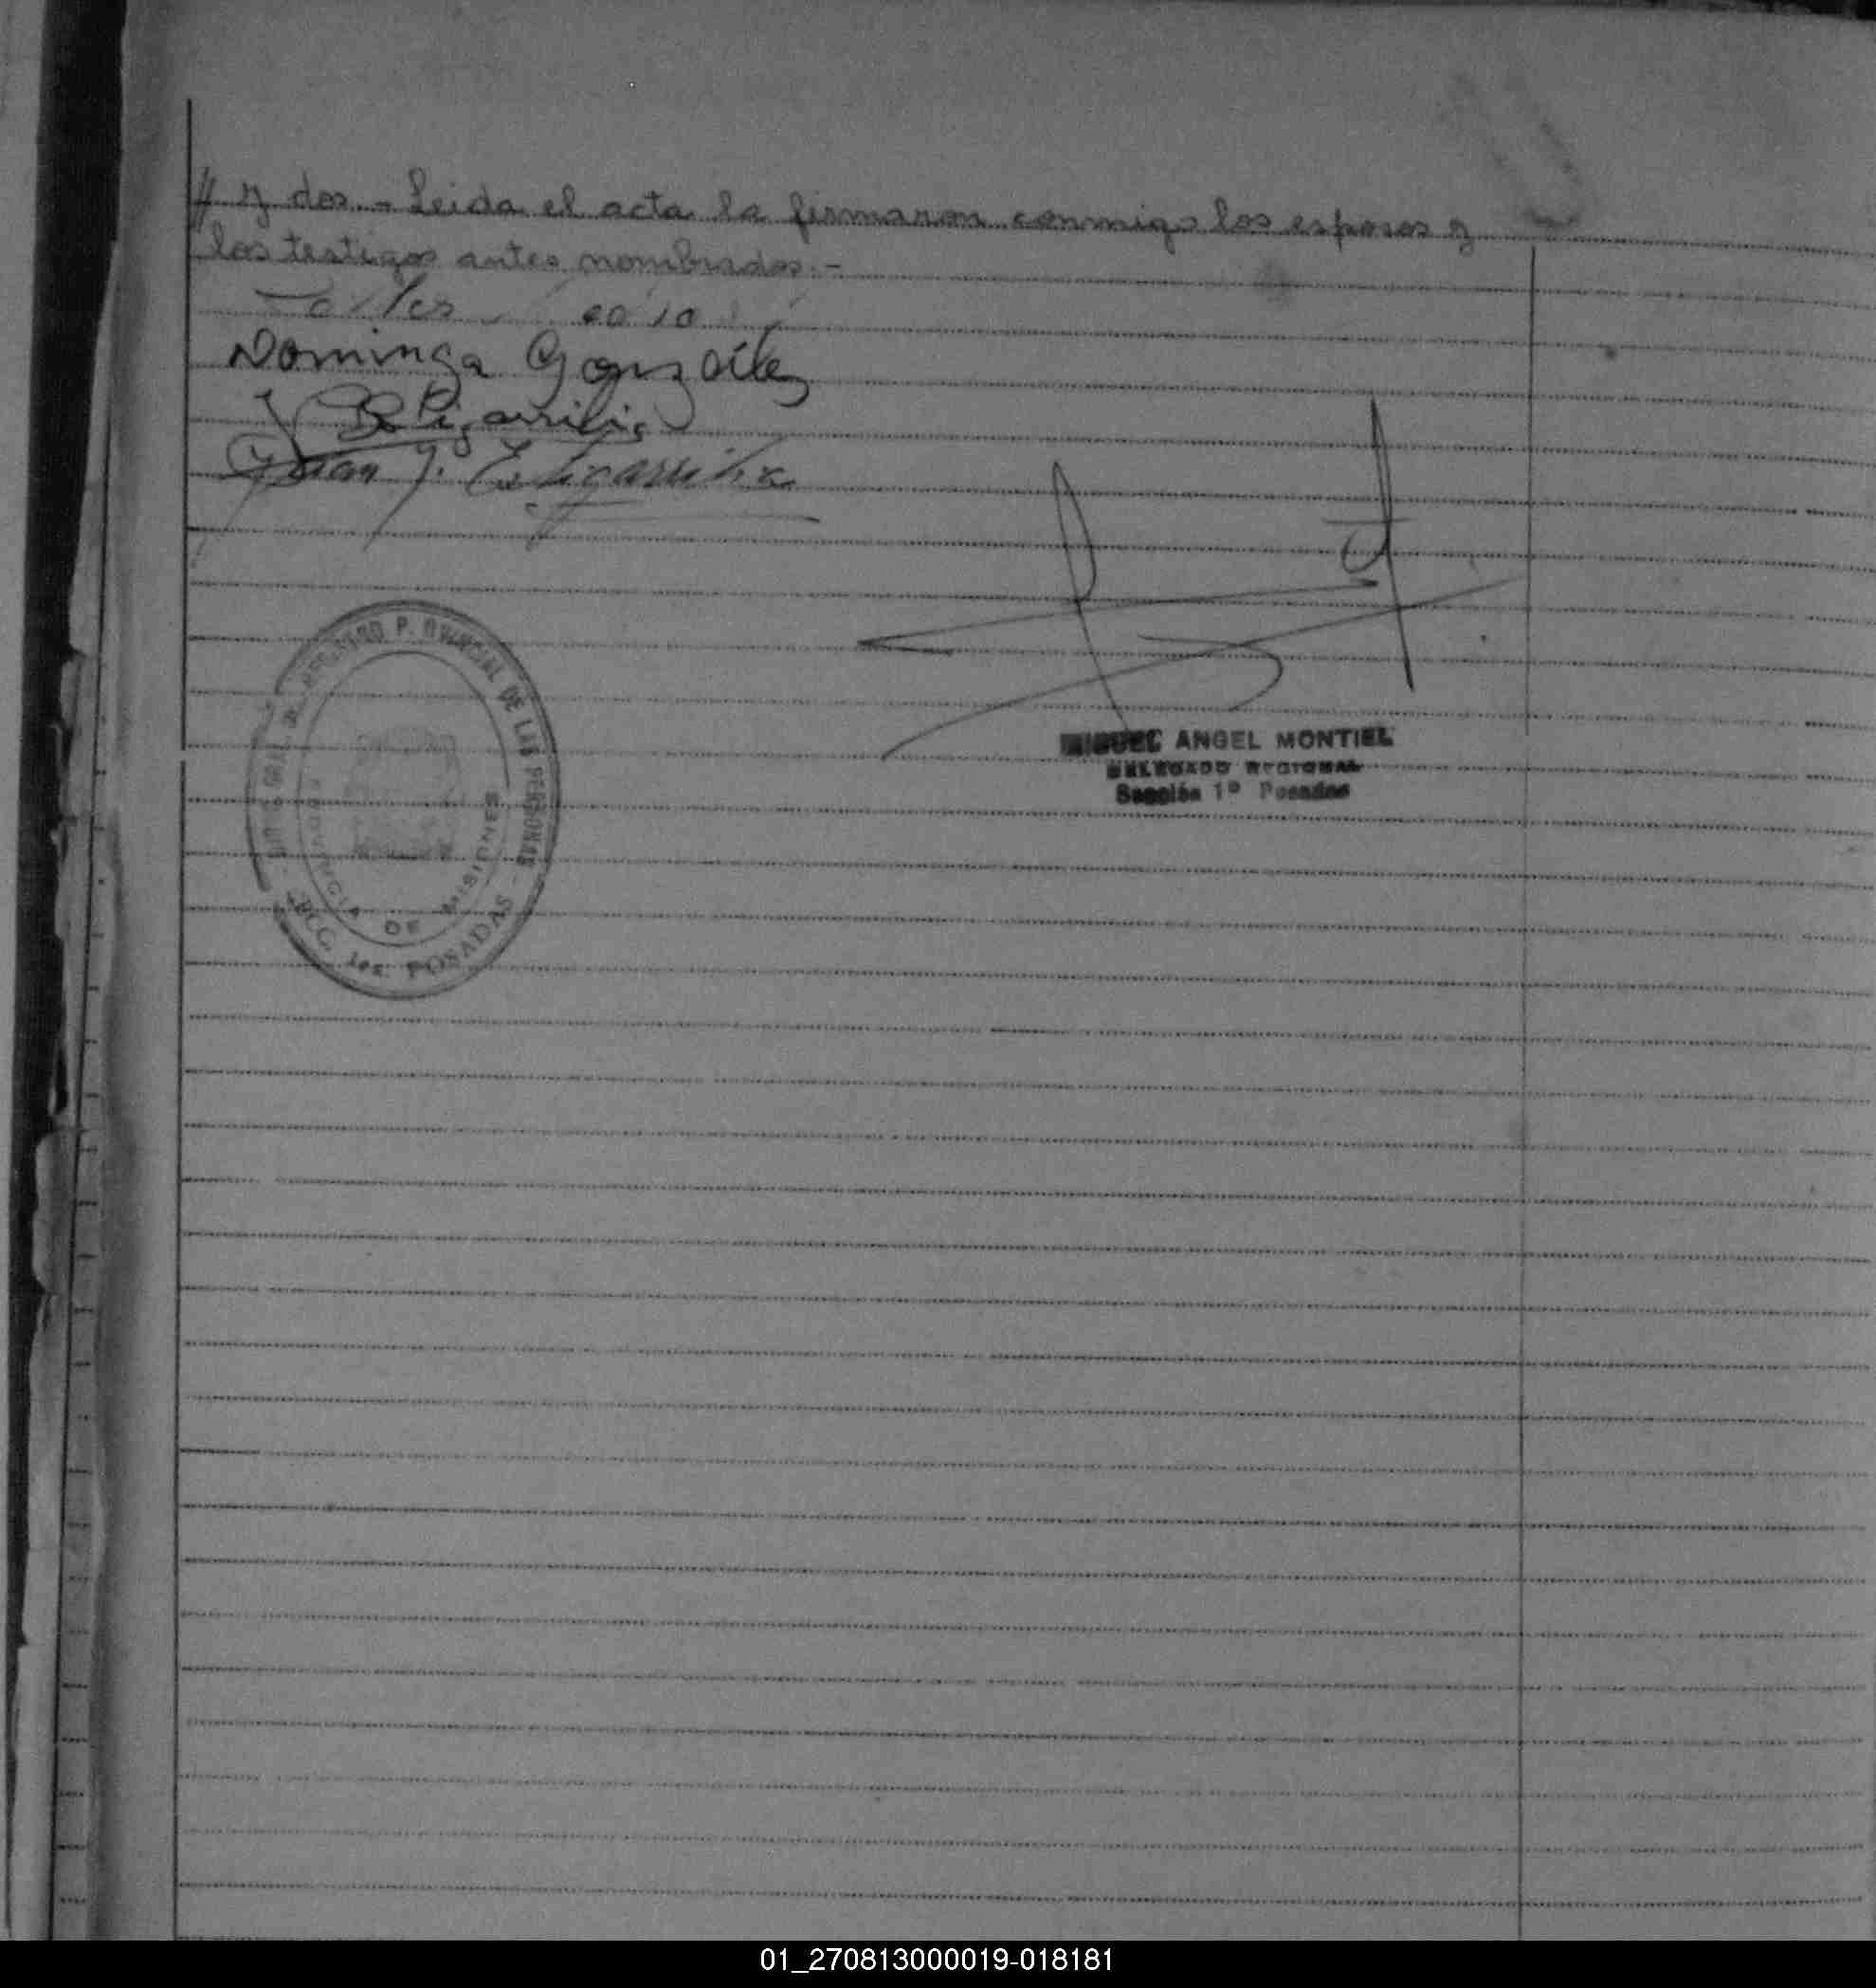 // y dos.- Leida el acta la firmaron conmigo los esposos y
los testigos antes nombrados.-
Dominga González
Juan J.
MIGUEL ANGEL MONTIEL
DELEGADO REGIONAL
Sección 1ª Posadas
PROVINCIAL DE LAS PERSONAS
PROVINCIA DE MISIONES
SECC. 1ra. POSADAS
01_270813000019-018181